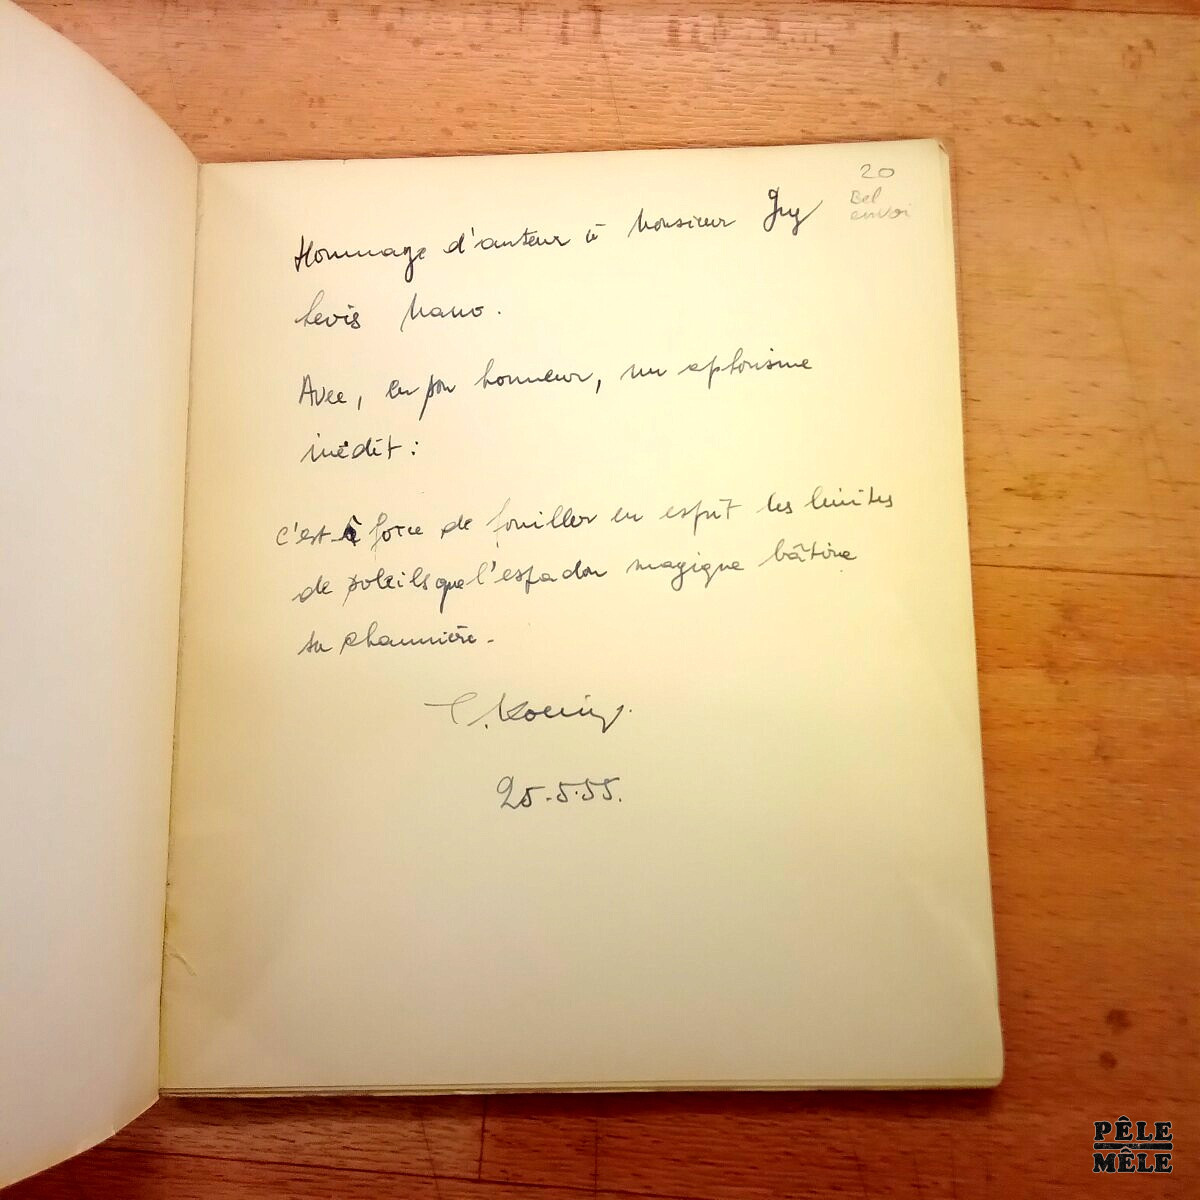 20
Bel
envoi
Hommage d'auteur à Monsieur Guy
Levis Mano.
Avec, en son honneur, un aphorisme
inédit :
C'est à force de fouiller en esprit les limites
de soleils que l'espadon magique bâtira
sa chaumière.
T. Koenig.
25.5.55.
PÊLE
MÊLE